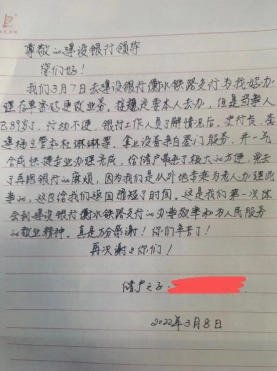 尊敬的建设银行领导
你们好!
我们3月7日去建设银行衡水铁路支行为我母办
理存单密码更改业务,按规定要本人去办,但是当事人
已89岁了,行动不便,银行工作人员了解情况后,
拿业设备来自己家门服务,
合规快捷专业办理完成,给储户带来了极大的方便,免去
了再跑银行的麻烦,因为我们是从外地专来为老人办理此
事的,这也给我们返回缩短了时间。这是我们第一次体
会到建设银行衡水铁路支行的办事效率和为人民服务
的敬业精神。真是万分感谢!你们辛苦了!
再次谢谢你们!
储户之子:
2022年3月8日